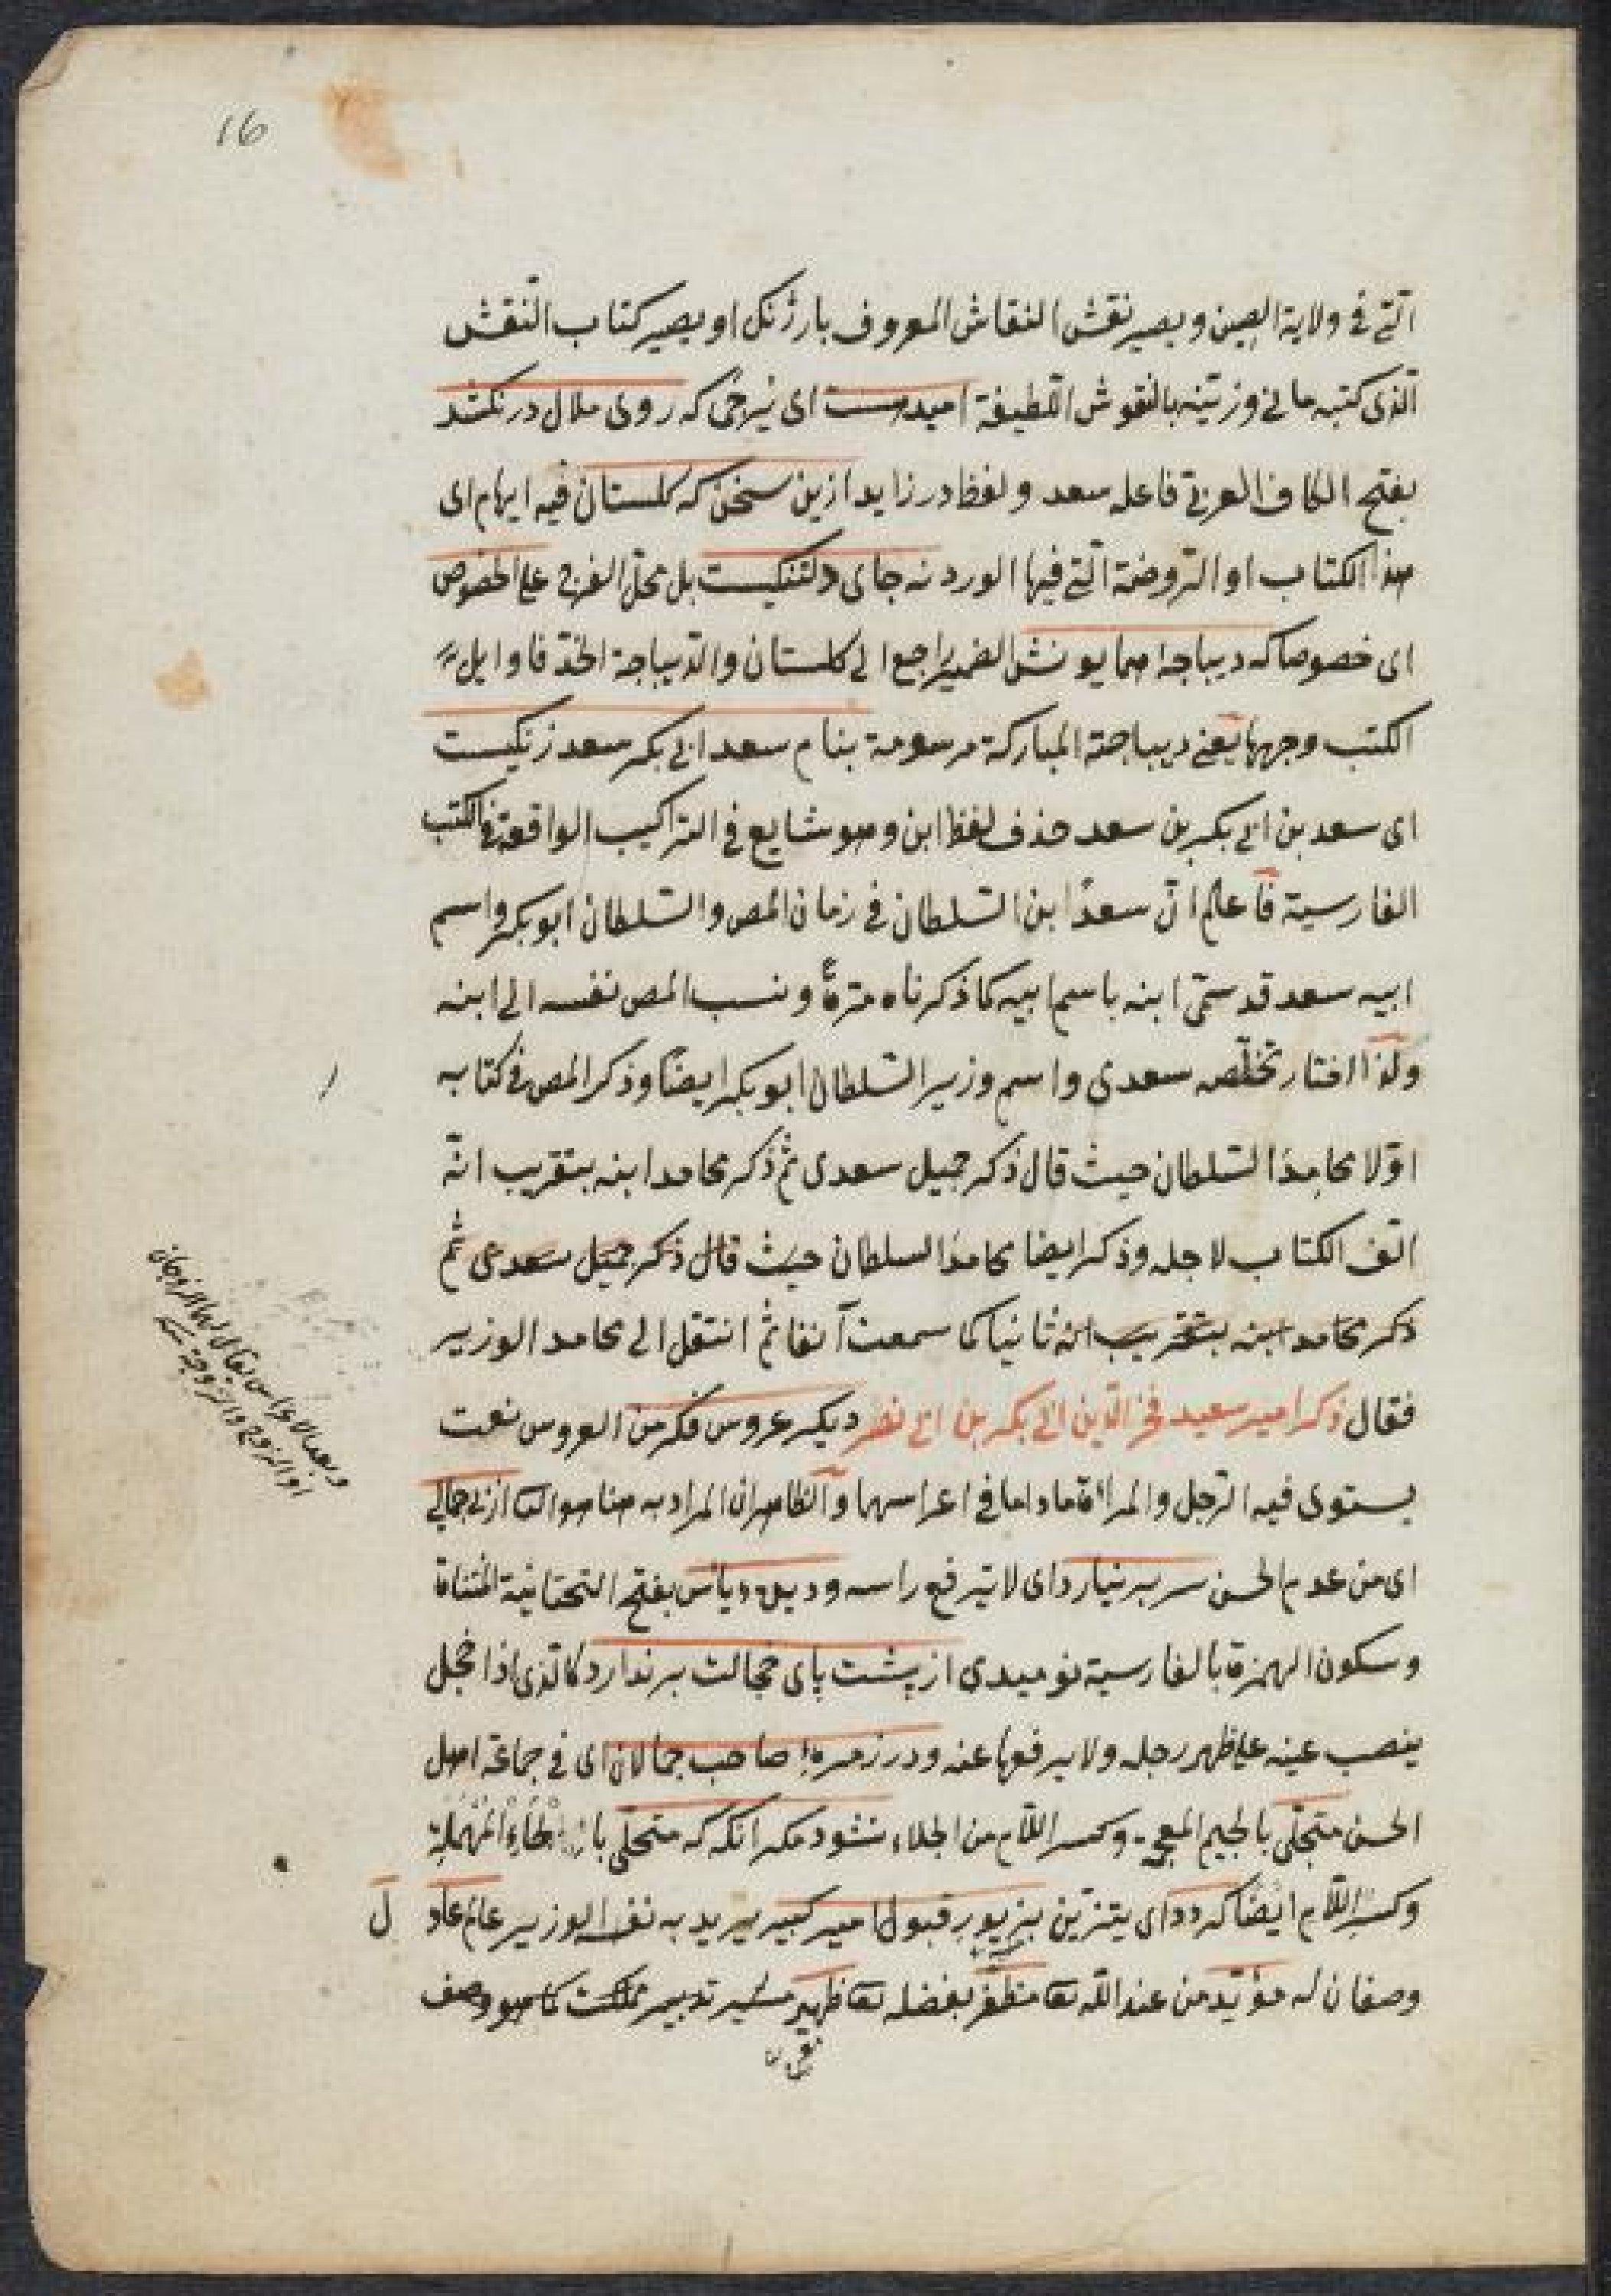 16
الّتي في ولاية الصين ويصير نقش النقاش المعروف بارژنك او يصير كتاب النقش
الّذى كتبه مانى وزيّنه بالنقوش اللّطيفة اميدست اى يُرجى كه روى ملال درنكشد
بفتح الكاف العربى فاعله سعد ولفظ در زايد ازين سخن كه كلستان فيه ايهام اى
هذا الكتاب او الرّوضة الّتي فيها الورد نه جاى دلتنكيست بل محلّ الفرح على الخصوص
اى خصوصا كه ديباجهٔ همايونش الضمير راجع الى كلستان والدّيباجة الخدّ فاوايل
الكتب وجهها يعنى ديباجته المباركة مرسومة بنام سعد ابى بكر سعد زنكيست
اى سعد بن ابى بكر بن سعد حذف لفظ ابن وهو شايع في التراكيب الواقعة في الكتب
الفارسية فاعلم انّ سعدًا ابن السّلطان في زمان المص والسّلطان ابو بكر واسم
ابيه سعد قد سمّى ابنه باسم ابيه كما ذكرناه مرّةً ونسب المص نفسه الى ابنه
ولذا اختار تخلّصه سعدى واسم وزير السّلطان ابو بكر ايضًا وذكر المص في كتابه
اوّلا محامد السّلطان حيث قال ذكر جميل سعدى ثم ذكر محامد ابنه بتقريب انّه
الّف الكتاب لاجله وذكر ايضا محامد السلطان حيث قال ذكر جميل سعدى ثم
ذكر محامد ابنه بتقريب انه ثانيا كما سمعت آنفا ثم انتقل الى محامد الوزير
فقال ذكر امير سعيد فخر الدّين ابى بكر بن ابى نصر ديكر عروس فكر من العروس نعت
يستوى فيه الرّجل والمرأة ماداما في اعراسهما والظاهر ان المراد به هنا هو الثانى ازبى جمالى
اى من عدم الحسن سر بر نيارد اى لا يرفع راسه وديدهٔ ياس بفتح التحتانية المثناة
وسكون الهمزة بالفارسية نوميدى از پشت پاى خجالت برندارد كالّذى اذا خجل
ينصب عينه على ظهر رجله ولا يرفعها عنه ودر زمرهٔ صاحب جمالان اى في جماعة اهل
الحسن متجلّى بالجيم المعجمة وكسر اللّام من الجلاء نشود مكر انكه كه متحلّى باز بالحاء المهملة
وكسر اللّام ايضًا كردد اى يتزيّن بزيور قبول امير كبير يريد به نفس الوزير عالم عادل
وصفان له مؤيّد من عند الله تعا مظفّر بفضله تعا ظهير سرير تدبير مملكت كما هو وصف
وبعد الاعراس يقال لهما الزوجان
او الزوج والزوجة